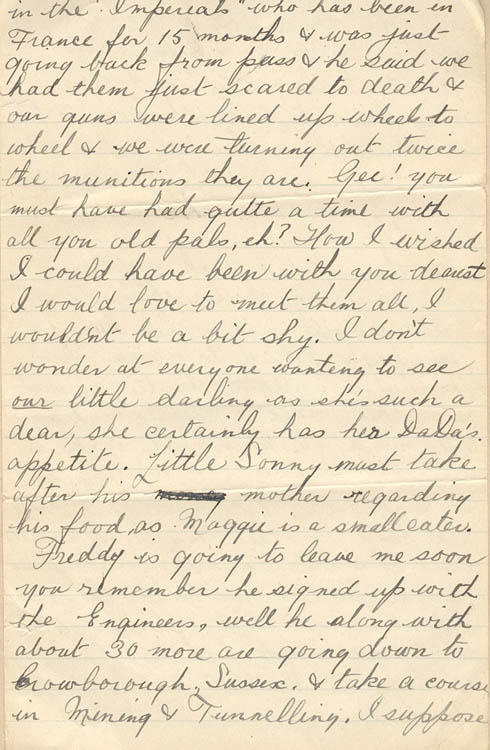 in the "Imperials" who has been in
France for 15 months & was just
going back from pass & he said we
had them just scared to death &
our guns were lined up wheel to
wheel & we were turning out twice
the munitions they are. Gee! you
must have had quite a time with
all you old pals, eh? How I wished
I could have been with you dearest
I would love to meet them all, I
wouldn't be a bit shy. I don't
wonder at everyone wanting to see
our little darling as she's such a
dear, she certainly has her DaDa's.
appetite. Little Sonny must take
after his mother regarding
his food, as Maggie is a small eater.
Freddy is going to leave me soon
you remember he signed up with
the Engineers, well he along with
about 30 more are going down to
Crowborough, Sussex. & take a course
in Mining & Tunnelling. I suppose